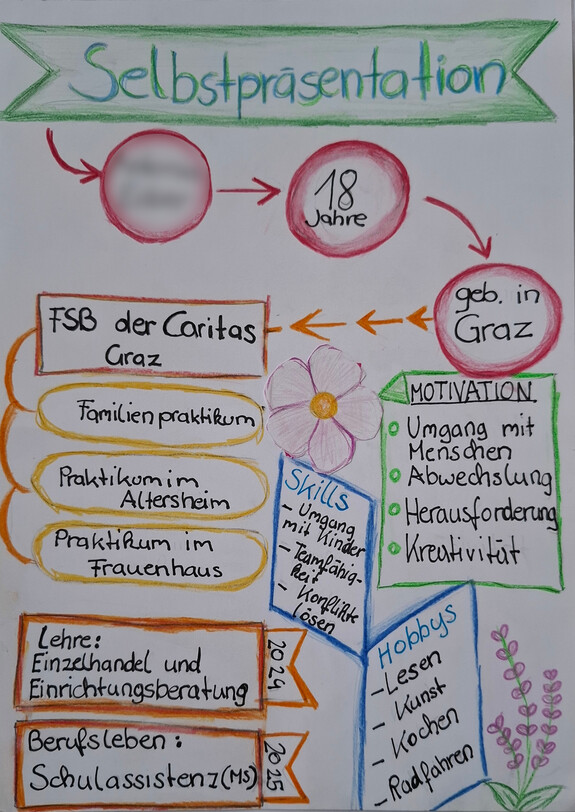 Selbstpräsentation
18
Jahre
geb. in
Graz
FSB der Caritas
Graz
Familienpraktikum
Praktikum im
Altersheim
Praktikum im
Frauenhaus
MOTIVATION
Umgang mit
Menschen
Abwechslung
Herausforderung
Kreativität
Skills
- Umgang
mit Kinder
- Teamfähig-
keit
- Konflikte
lösen
Lehre:
Einzelhandel und
Einrichtungsberatung
2024
Berufsleben:
Schulassistenz (MS)
2025
Hobbys
- Lesen
- Kunst
- Kochen
- Radfahren